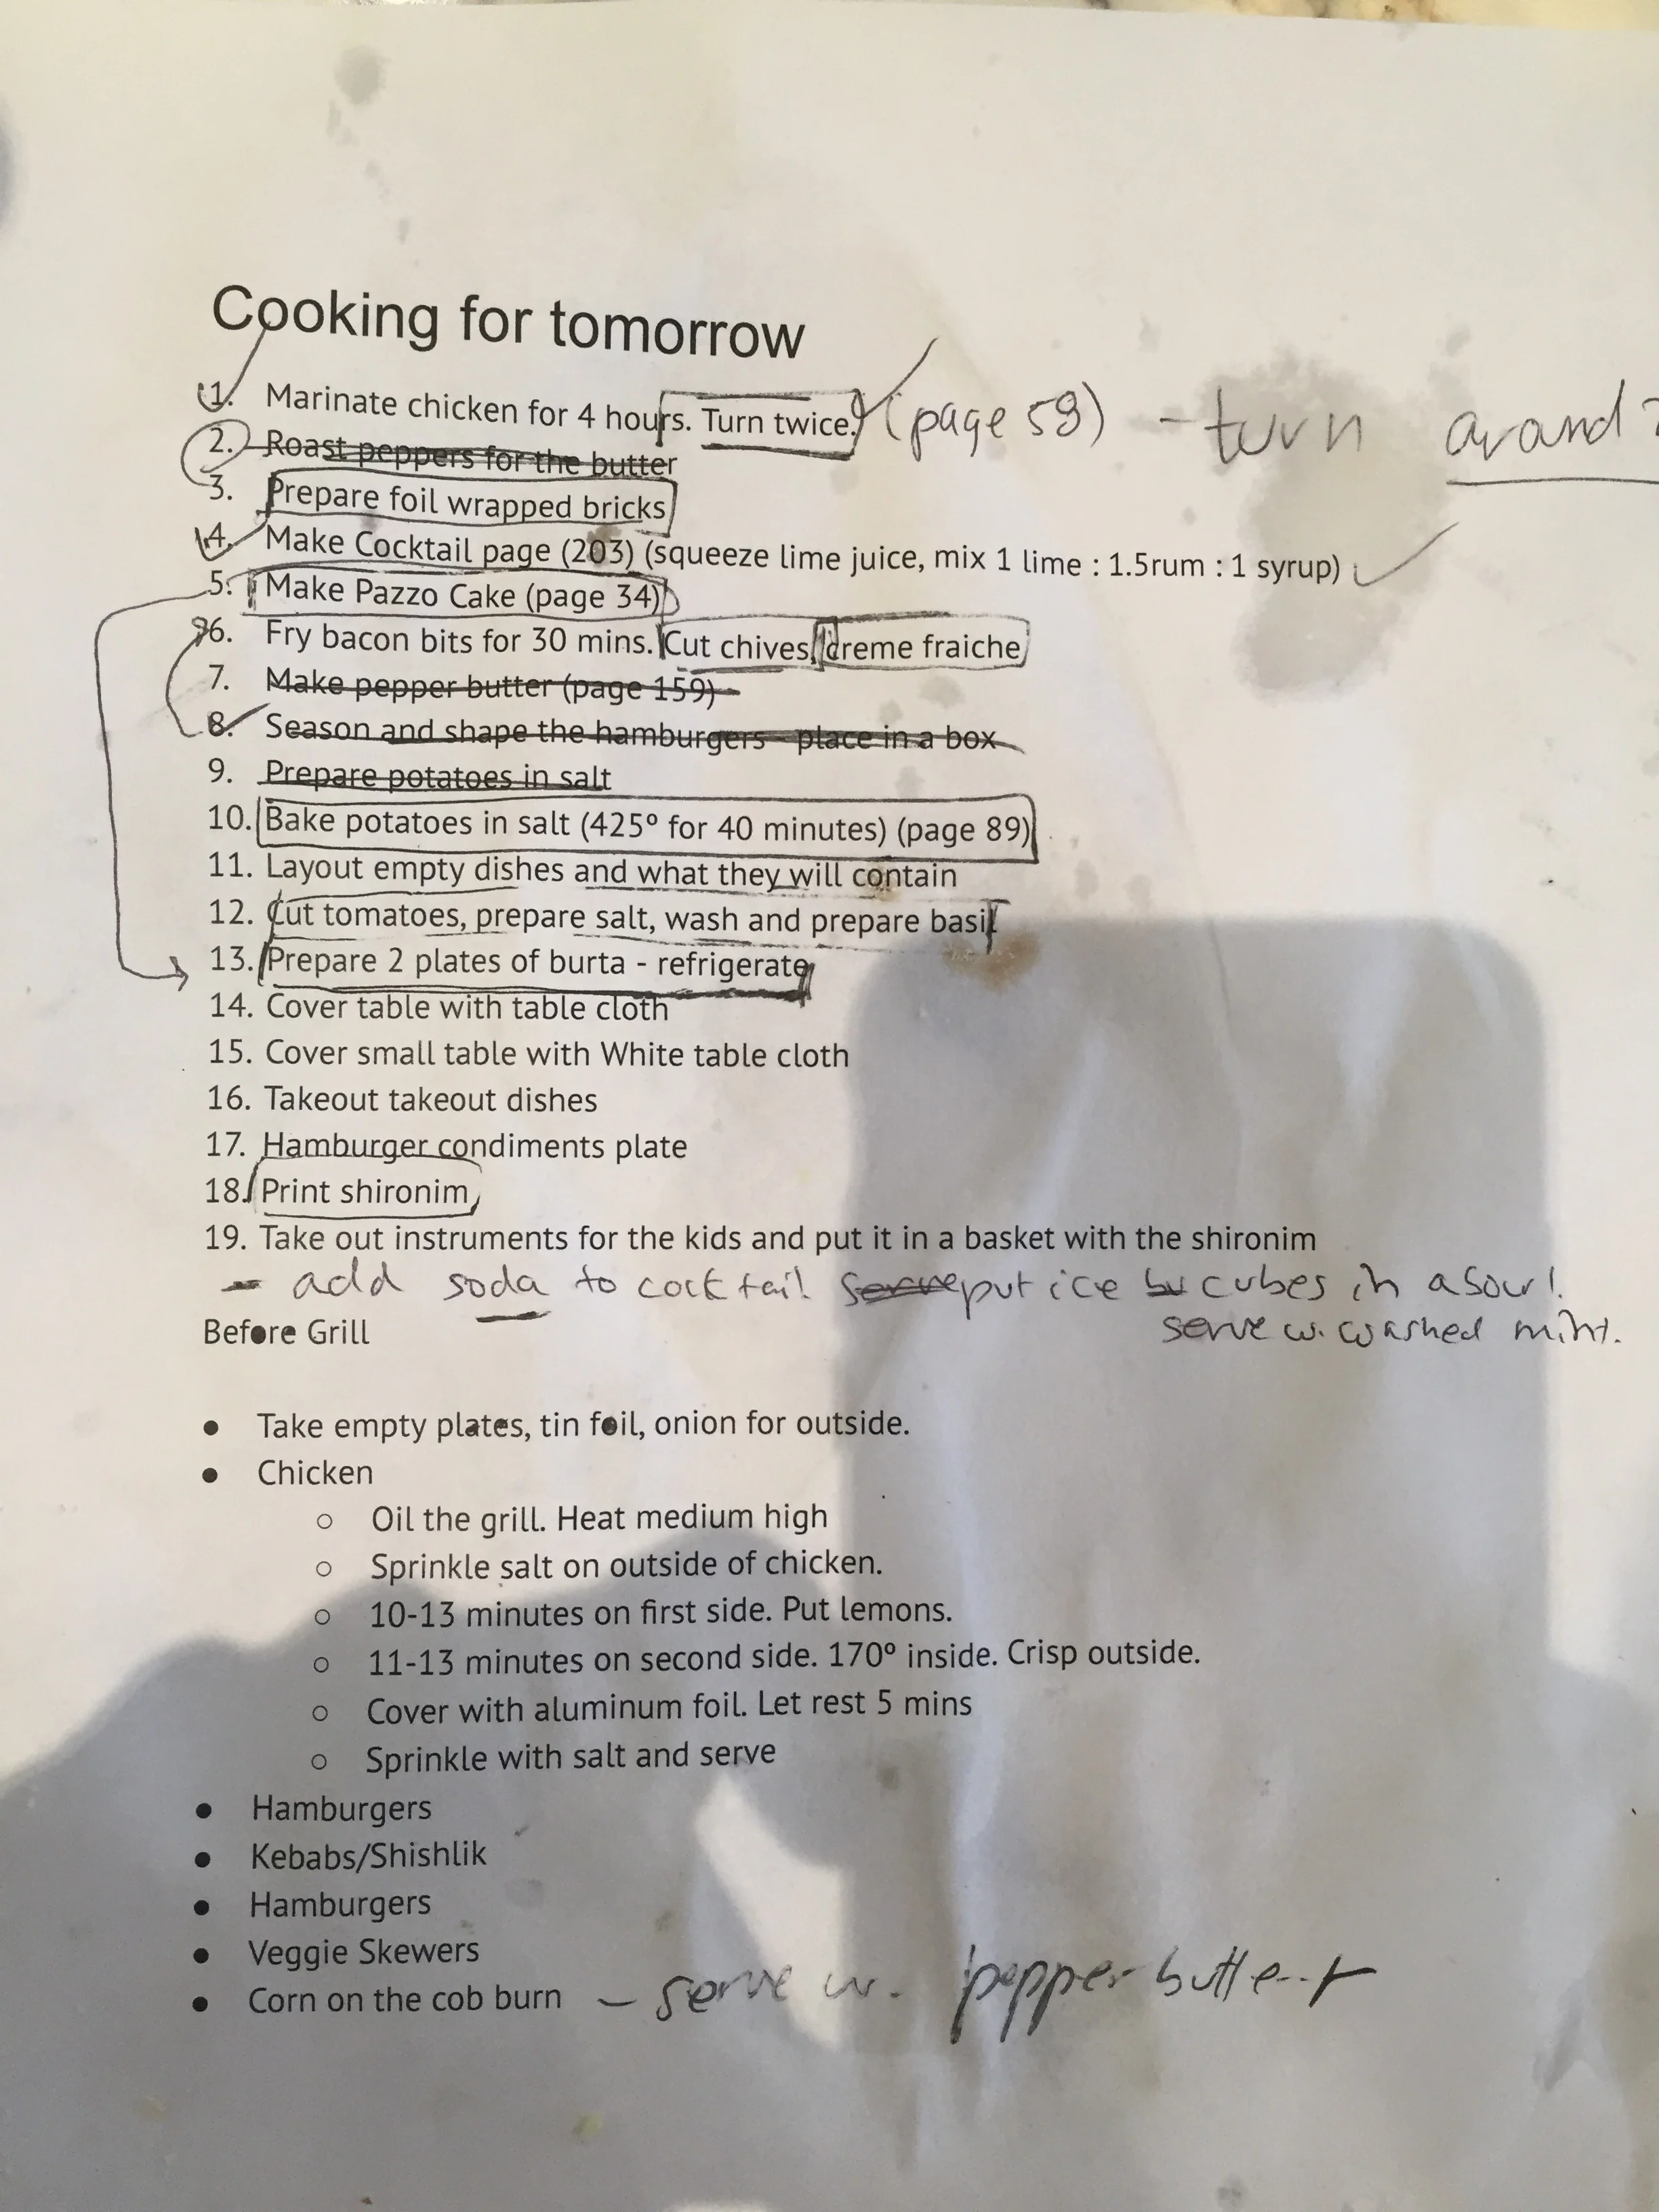 Cooking for tomorrow
1. Marinate chicken for 4 hours. Turn twice. (page 59) - turn around
2. Roast peppers for the butter
3. Prepare foil wrapped bricks
4. Make Cocktail page (203) (squeeze lime juice, mix 1 lime : 1.5rum : 1 syrup)
5. Make Pazzo Cake (page 34)
6. Fry bacon bits for 30 mins. Cut chives, creme fraiche
7. Make pepper butter (page 159)
8. Season and shape the hamburgers - place in a box
9. Prepare potatoes in salt
10. Bake potatoes in salt (425º for 40 minutes) (page 89)
11. Layout empty dishes and what they will contain
12. Cut tomatoes, prepare salt, wash and prepare basil
13. Prepare 2 plates of burta - refrigerate
14. Cover table with table cloth
15. Cover small table with White table cloth
16. Takeout takeout dishes
17. Hamburger condiments plate
18. Print shironim
19. Take out instruments for the kids and put it in a basket with the shironim
- add soda to cocktail serve put ice cubes in a
serve w. washed mint.
Before Grill
● Take empty plates, tin foil, onion for outside.
● Chicken
○ Oil the grill. Heat medium high
○ Sprinkle salt on outside of chicken.
○ 10-13 minutes on first side. Put lemons.
○ 11-13 minutes on second side. 170º inside. Crisp outside.
○ Cover with aluminum foil. Let rest 5 mins
○ Sprinkle with salt and serve
● Hamburgers
● Kebabs/Shishlik
● Hamburgers
● Veggie Skewers
● Corn on the cob burn - serve w. pepper butter